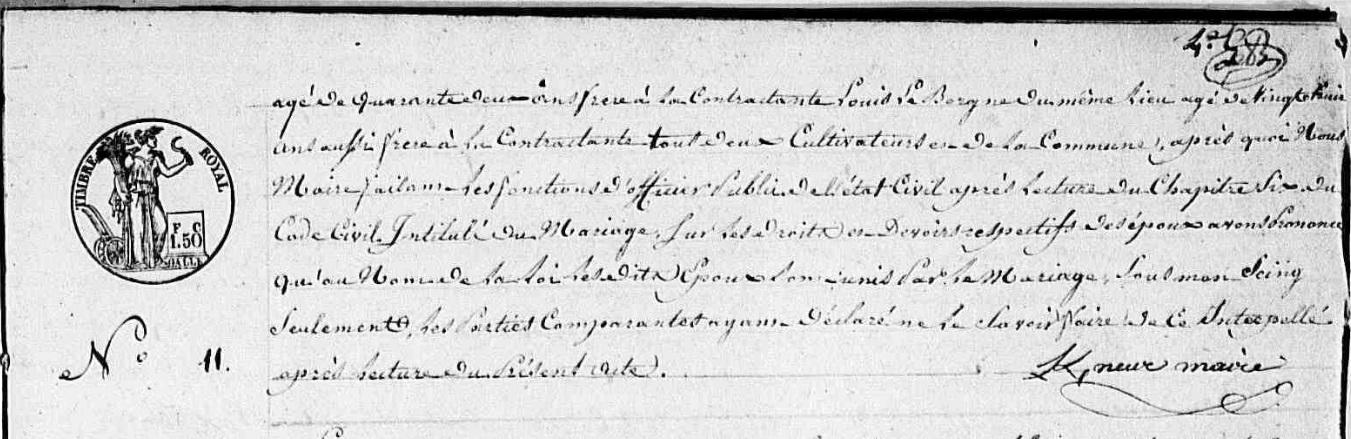 4e
285
agé de quarante deux ans frere à la Contractante Louis Le Borgne du même lieu agé de vingt huit
ans aussi frere à la Contractante tout deux Cultivateurs en de la Commune, après quoi Nous
Maire faisant les fonctions d'officier Public de l'état Civil après Lecture du Chapitre Six du
Code Civil Intitulé du Mariage, Sur les droits et Devoirs respectifs des époux avons Prononcé
qu'au Nom de la Loi Lesdits Epoux sont unis Par le Mariage, Sous mon Seing
Seulement, les Parties Comparantes ayant Déclaré ne le Savoir faire de ce Interpellé
après Lecture du Présent acte.
TIMBRE ROYAL
F. C
1.50
DALLE
No 11.
maire